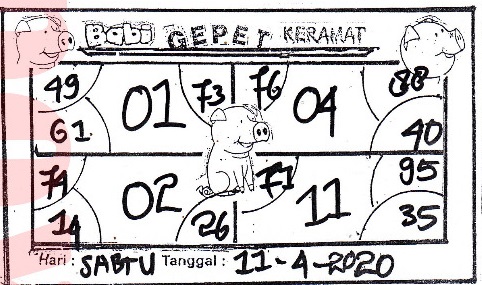 Babi GEPET KERAMAT
49 01 73 76 04 88
61 40
74 02 71 11 95
14 26 35
Hari : SABTU Tanggal : 11-4-2020